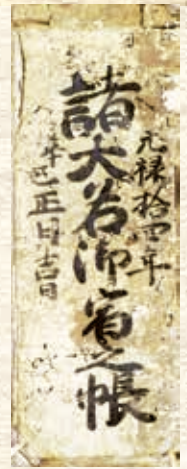 元禄拾四年
諸大名御宿之帳
辛巳正月吉日